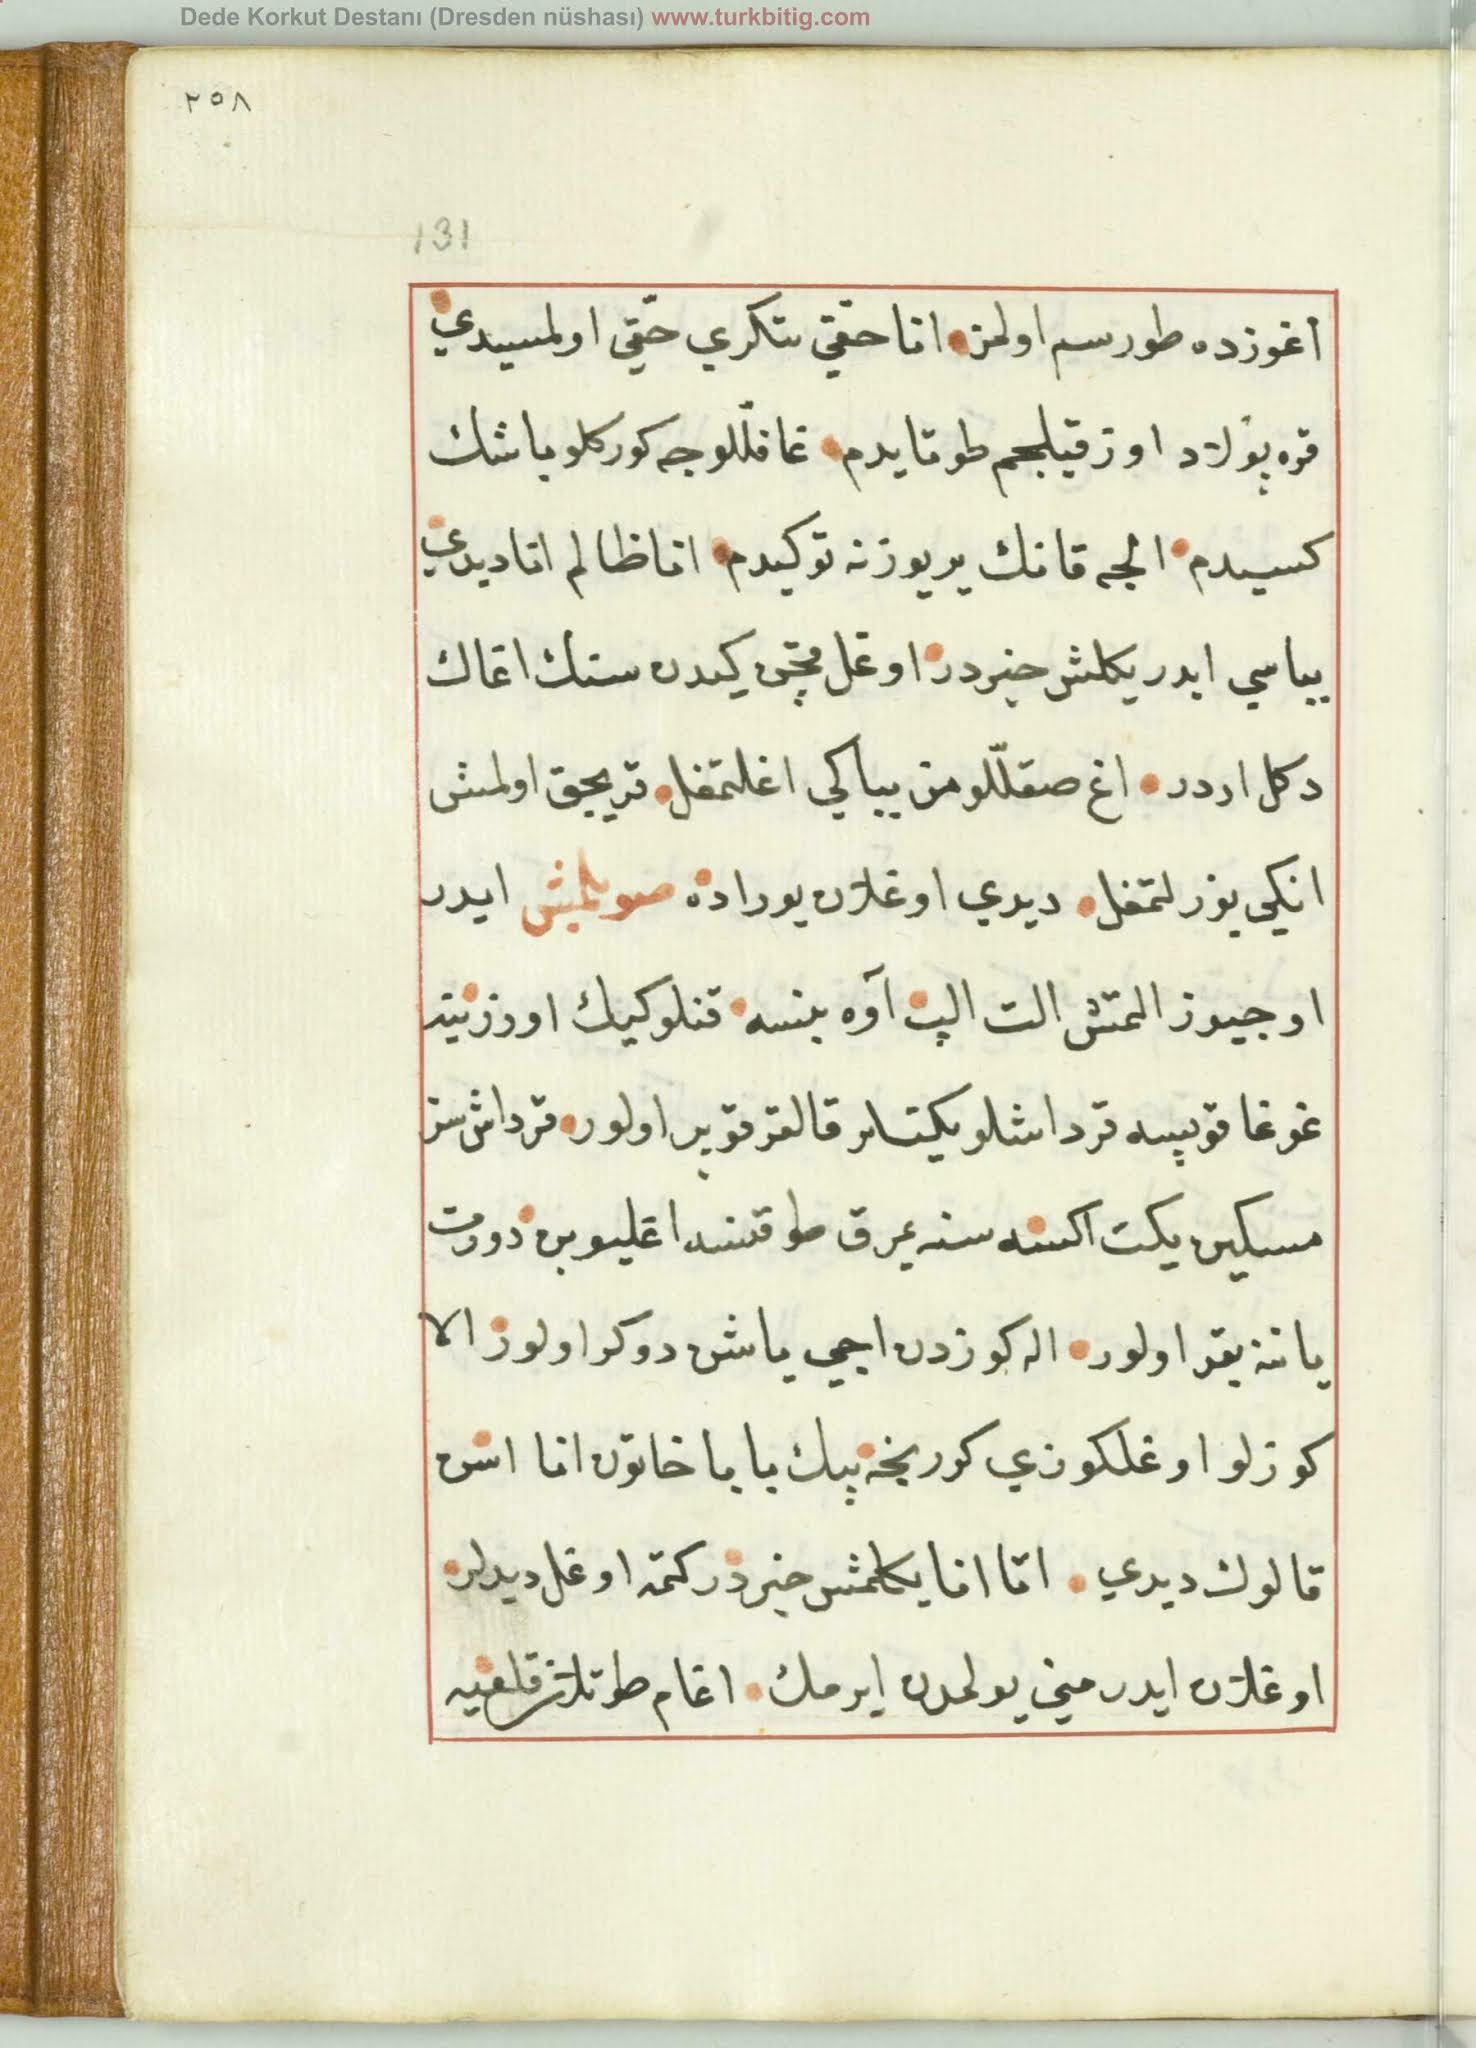 Dede Korkut Destanı (Dresden nüshası) www.turkbitig.com
٢٥٨
131
اغوزده طورسم اولمز انا حقّی تنكری حقّی اولمسیدی
قره پولاد اوز قیلجم طوتایدم غافللوجه كوركلو باشك
كسیدم الجه قانك یر یوزنه توكیدم انا ظالم انا دیدی
بباسی ایدر یكلش خبردر اوغل قچن كیدن سنك اغاك
دكل اردر اغ صقللّو من بباكی اغلتمغل قریجق اولمش
انكی بوزلتمغل دیدی اوغلان بوراده صویلمش ایدر
اوجیوز التمش الت الپ آوه بنسه قنلو كیك اوزرینه
غوغا قوپسه قرداشلو یكتلر قالقر قوپر اولور قرداش سز
مسكین یكت اكسنه سنه یمرق طوقنسه اغلیوبن دورت
یاننه بقر اولور اله كوزدن اجی یاشن دوكر اولور الا
كوزلو اوغلكوزی كورنجه بیك بابا خاتون انا اسن
قالوك دیدی اتا انا یكلمش خبردر كتمه اوغل دیدلر
اوغلان ایدر منی یولمدن ایرمك اغام طوتلان قلعیه